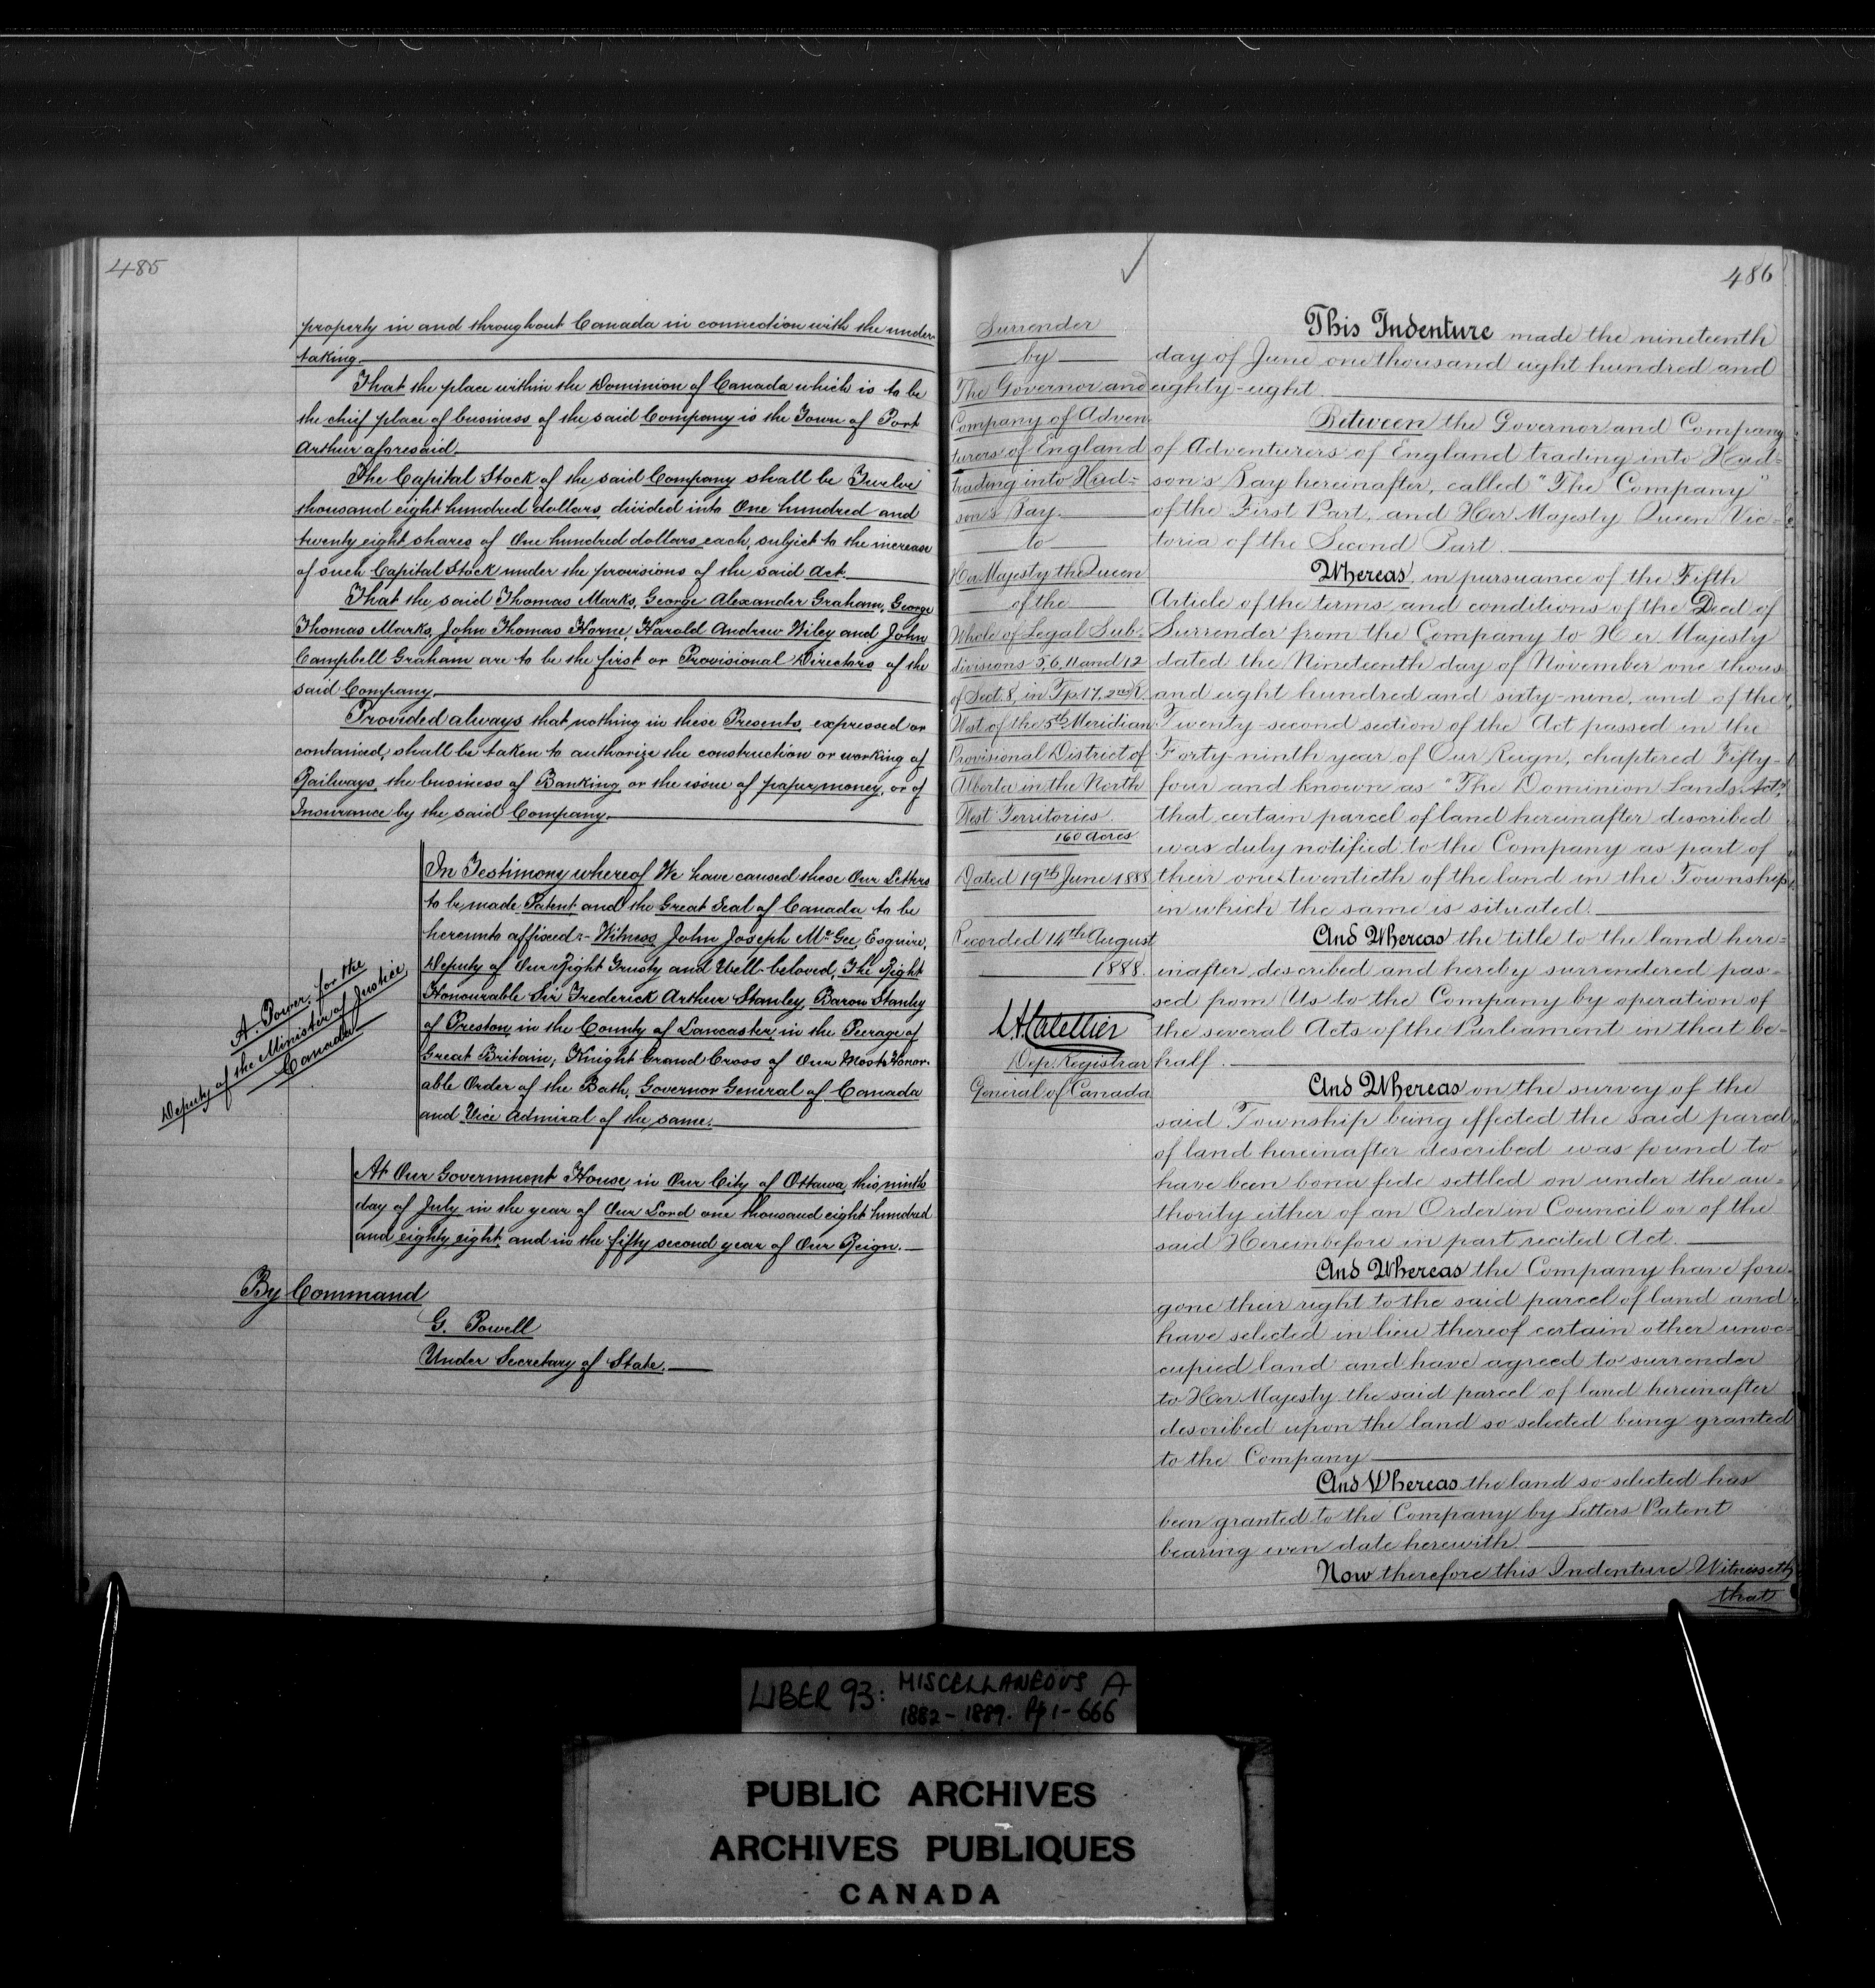 485
property in and throughout Canada in connection with the under-
taking.
That the place within the Dominion of Canada which is to be
the chief place of business of the said Company is the Town of Port
Arthur aforesaid.
The Capital Stock of the said Company shall be Twelve
thousand eight hundred dollars divided into One hundred and
twenty eight shares of One hundred dollars each, subject to the increase
of such Capital Stock under the provisions of the said Act.
That the said Thomas Marks, George Alexander Graham, George
Thomas Marks, John Thomas Horne, Harold Andrew Wiley and John
Campbell Graham are to be the first or Provisional Directors of the
said Company.
Provided always that nothing in these Presents expressed or
contained, shall be taken to authorize the construction or working of
Railways, the business of Banking or the issue of paper money, or of
Insurance by the said Company.
In Testimony whereof We have caused these Our Letters
to be made Patent and the Great Seal of Canada to be
hereunto affixed:- Witness John Joseph McGee, Esquire,
Deputy of Our Right Trusty and Well-beloved, The Right
Honourable Sir Frederick Arthur Stanley, Baron Stanley
of Preston in the County of Lancaster, in the Peerage of
Great Britain; Knight Grand Cross of Our Most Honor-
able Order of the Bath, Governor General of Canada
and Vice Admiral of the same.
A. Power, for the
Deputy of the Minister of Justice
Canada
At Our Government House, in Our City of Ottawa, this ninth
day of July in the year of Our Lord one thousand eight hundred
and eighty eight and in the fifty second year of Our Reign.
By Command
G. Powell
Under Secretary of State.
486
Surrender
by
The Governor and
Company of Adven-
turers of England
trading into Hud-
son's Bay.
to
Her Majesty the Queen
of the
Whole of Legal Sub-
divisions 5, 6, 11 and 12
of Sect. 8, in Tp. 17, 2nd R.
West of the 5th Meridian
Provisional District of
Alberta in the North
West Territories.
160 acres
Dated 19th June 1888
Recorded 14th August
1888.
L.A. Catellier
Dep. Registrar
General of Canada
This Indenture made the nineteenth
day of June one thousand eight hundred and
eighty-eight.
Between the Governor and Company
of Adventurers of England trading into Hud-
son's Bay hereinafter, called "The Company"
of the First Part, and Her Majesty Queen Vic-
toria of the Second Part.
Whereas, in pursuance of the Fifth
Article of the terms and conditions of the Deed of
Surrender from the Company to Her Majesty
dated the Nineteenth day of November one thous-
and eight hundred and sixty-nine, and of the
Twenty-second section of the Act passed in the
Forty-ninth year of Our Reign, chaptered Fifty-
four and known as "The Dominion Lands Act"
that certain parcel of land hereinafter described
was duly notified to the Company as part of
their one twentieth of the land in the Township
in which the same is situated.
And Whereas the title to the land here-
inafter described and hereby surrendered pas-
sed from Us to the Company by operation of
the several Acts of the Parliament in that be-
half.
And Whereas on the survey of the
said Township being effected the said parcel
of land hereinafter described was found to
have been bona fide settled on under the au-
thority either of an Order in Council or of the
said Hereinbefore in part recited Act.
And Whereas the Company have fore-
gone their right to the said parcel of land and
have selected in lieu thereof certain other unoc-
cupied land and have agreed to surrender
to Her Majesty the said parcel of land hereinafter
described upon the land so selected being granted
to the Company
And Whereas the land so selected has
been granted to the Company by Letters Patent
bearing even date herewith.
Now therefore this Indenture Witnesseth
that
LIBER 93: MISCELLANEOUS A
1882-1889. Pp 1-666
PUBLIC ARCHIVES
ARCHIVES PUBLIQUES
CANADA